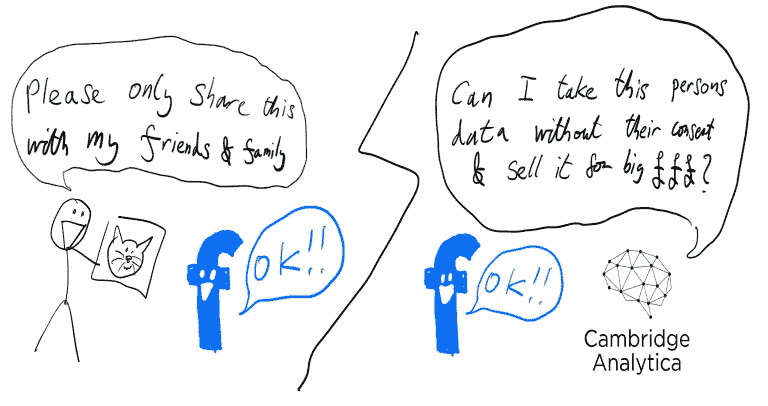 Please only share this
with my friends & family
OK!!
Can I take this persons
data without their consent
& sell it for big £££?
OK!!
Cambridge
Analytica